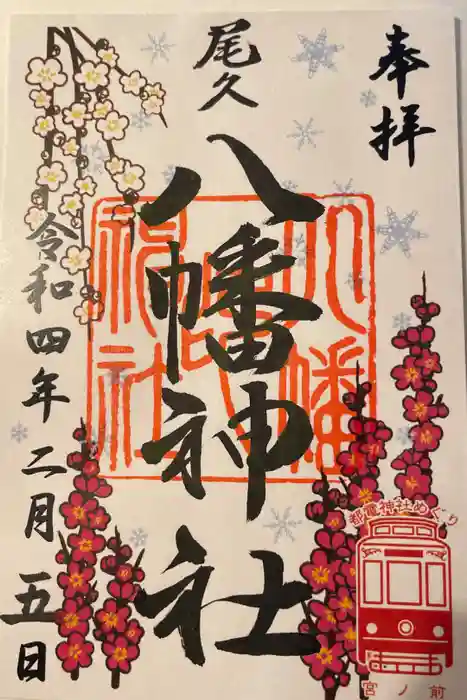 奉拝
尾久
八幡神社
八幡神社
令和四年二月五日
都電神社めぐり
宮ノ前